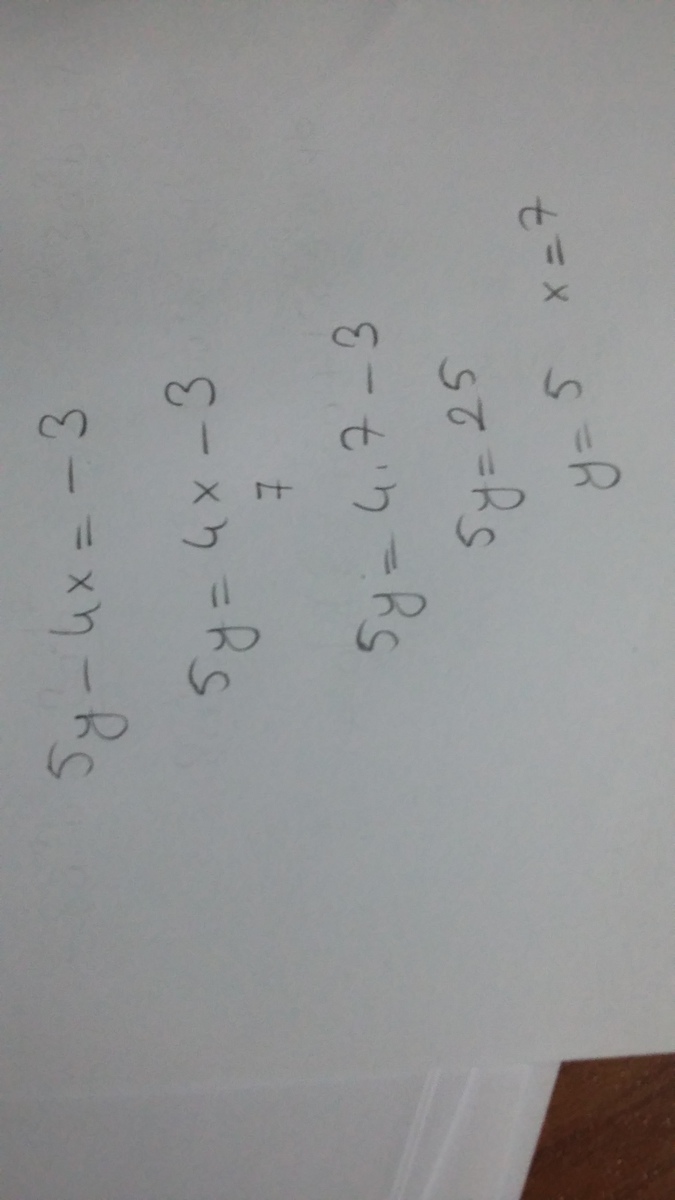 5y - 4x = -3
5y = 4x - 3
7
5y = 4·7 - 3
5y = 25
y = 5 x = 7